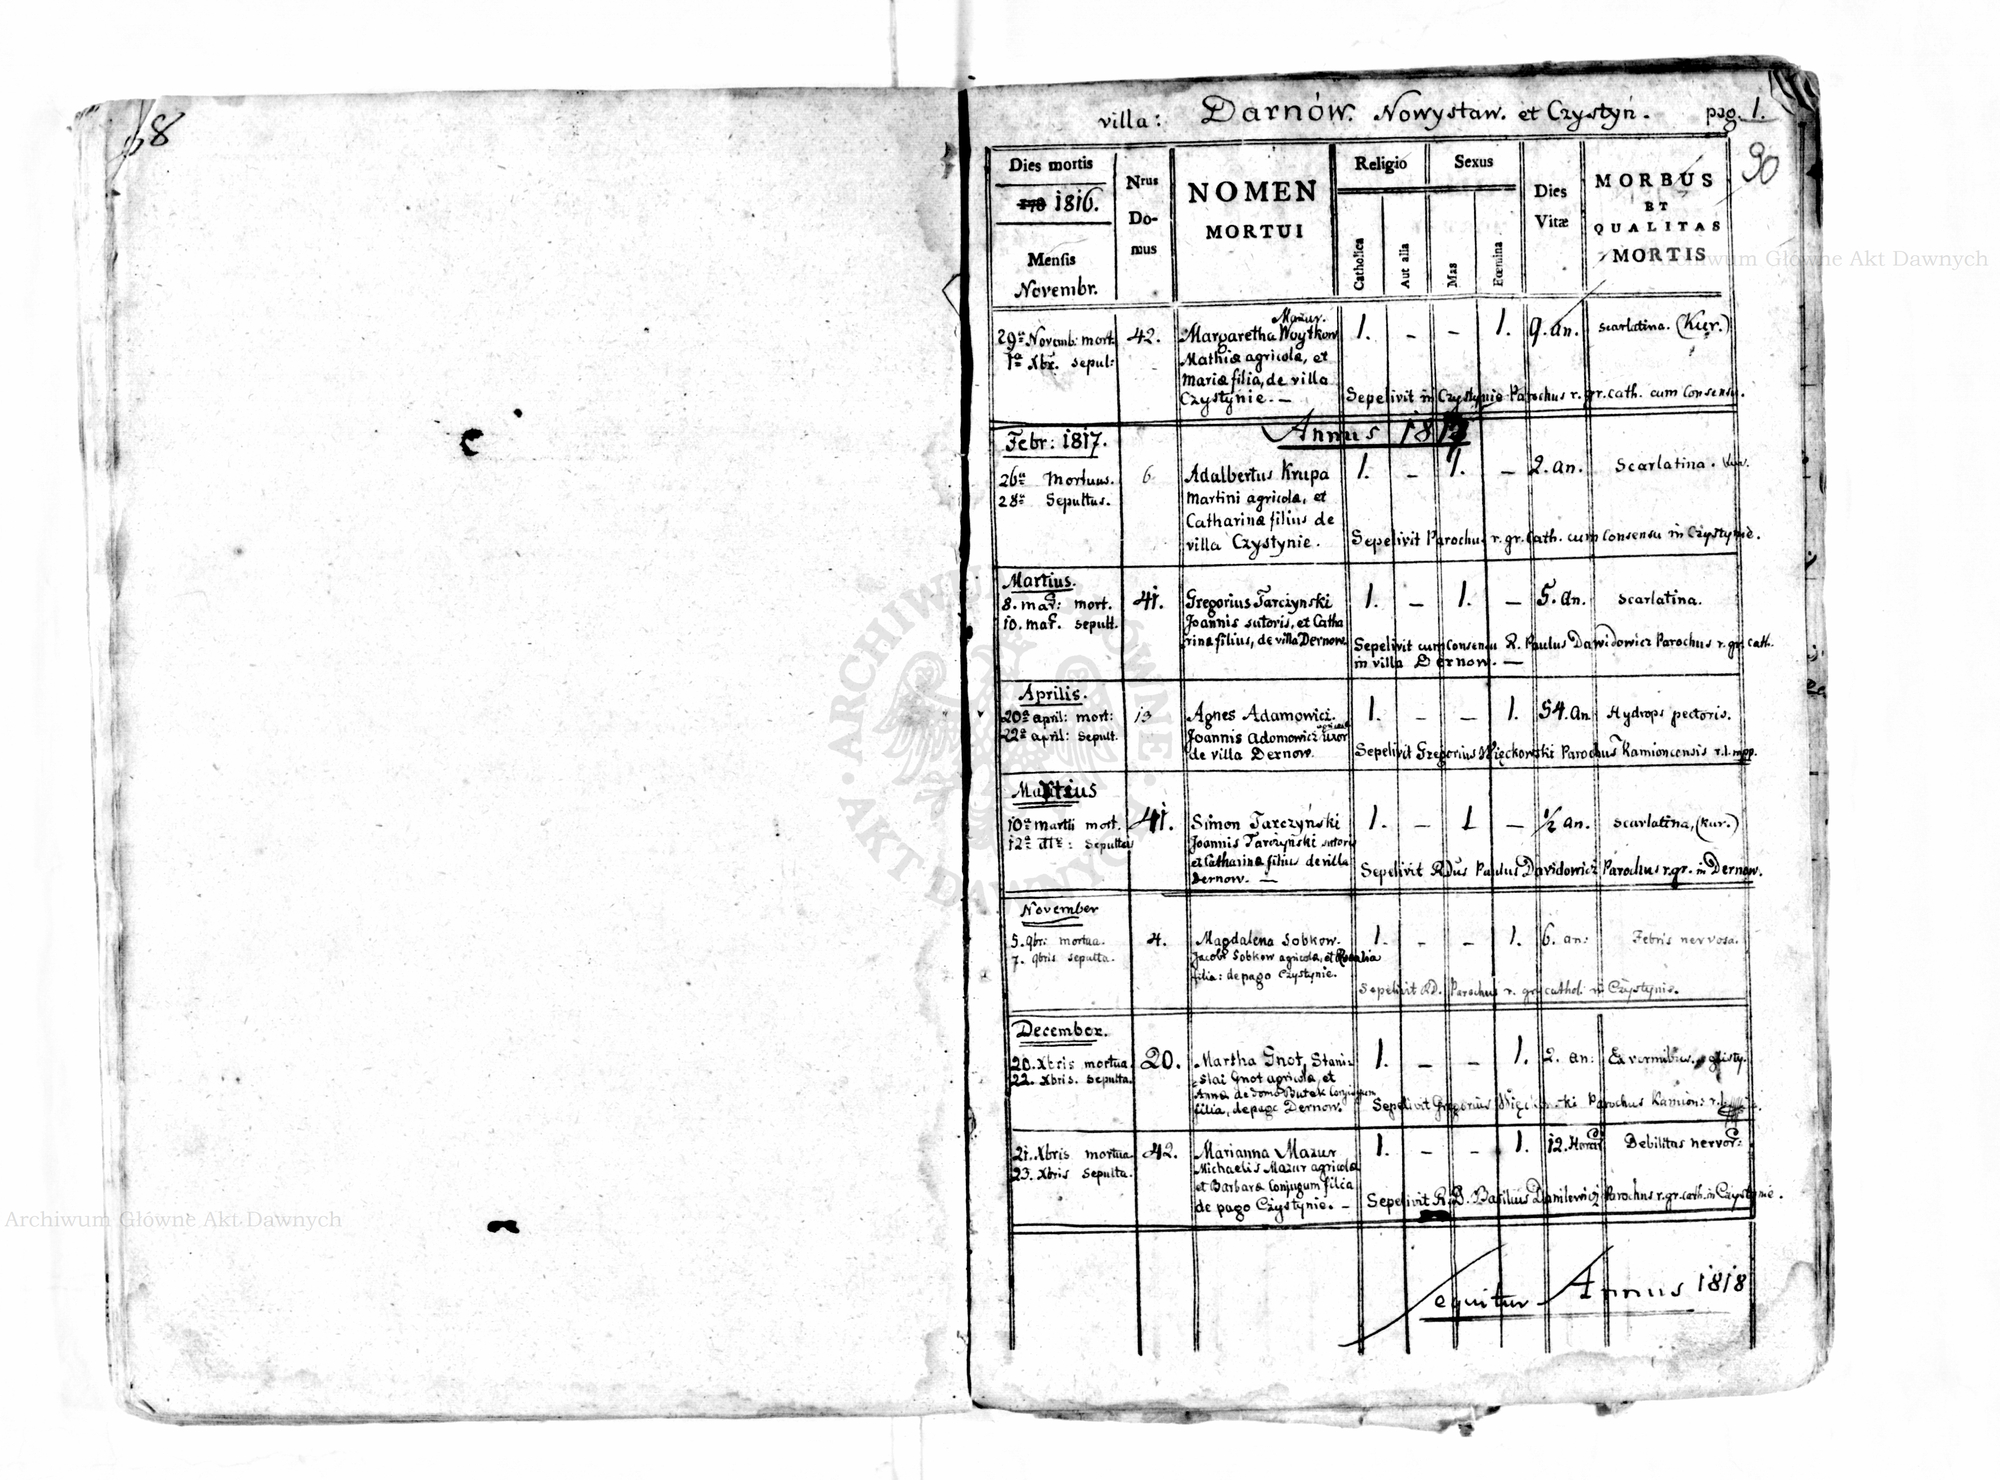 68
villa: Darnów. Nowystaw. et Czystyń. pag. 1.
90
Dies mortis
178 1816.
Mensis
Novembr.
Nrus
Do-
mus
NOMEN
MORTUI
Religio
Catholica
Aut alia
Sexus
Mas
Fœmina
Dies
Vitæ
MORBUS
ET
QUALITAS
MORTIS
Mazur.
29a Novemb: mort. 42. Margaretha Woytkow 1. - - 1. 9. an. scarlatina. (Kur.)
1a Xbr. sepul: Mathiæ agricolæ, et
Mariæ filia, de villa
Czystynie. — Sepelivit in Czystynie Parochus r. gr. cath. cum Consensu.
Annus 1817
Febr: 1817.
26a Mortuus. 6 Adalbertus Krupa 1. - 1. - 2. an. Scarlatina. Kur.
28a Sepultus. Martini agricolæ, et
Catharinæ filius de
villa Czystynie. Sepelivit Parochus r. gr. Cath. cum Consensu in Czystynie.
Martius.
8. mar: mort. 41. Gregorius Tarczynski 1. - 1. - 5. an. Scarlatina.
10. mar. sepult. Joannis sutoris, et Catha
rinæ filius, de villa Dernow Sepelivit cum Consensu R. Paulus Dawidowicz Parochus r. gr. cath.
in villa Dernow. —
Aprilis.
20a april: mort: 13 Agnes Adamowicz. 1. - - 1. 54. an Hydrops pectoris.
22a april: sepult. Joannis Adomowicz uxor
de villa Dernow. Sepelivit Gregorius Więckowski Parochus Kamioncensis r. l. mpp.
Martius
10a martii mort. 41. Simon Tarczyński 1. - 1 - 1/2 an. scarlatina, (kur.)
12a sepultus Joannis Tarczyński sutoris
et Catharinæ filius de villa
Dernow. — Sepelivit RDus Paulus Davidowicz Parochus r. gr. in Dernow.
November
5. 9br: mortua. 4. Magdalena Sobkow. 1. - - 1. 6. an: Febris nervosa.
7. 9bris sepulta. Jacobi Sobkow agricolæ, et Rosalia
filia: de pago Czystynie. Sepelivit RD. Parochus r. gr. cathol. in Czystynie.
December.
20. Xbris mortua. 20. Martha Gnot, Stani- 1. - - 1. 2. an: Ex vermibus.
22. Xbris. sepulta. slai Gnot agricolæ, et
Annæ de domo Butek Conjugum
filia, de pago Dernow. Sepelivit Gregorius Więckowski Parochus Kamion: r.
21. Xbris mortua 42. Marianna Mazur 1. - - 1. 12. Horar Debilitas nervor:
23. Xbris sepulta. Michaelis Mazur agricolæ
et Barbaræ Conjugum filia
de pago Czystynie. — Sepelivit R. D. Basilius Danilevicz Parochus r. gr. cath. in Czystynie.
Sequitur Annus 1818
ARCHIWUM GŁÓWNE AKT DAWNYCH
Archiwum Główne Akt Dawnych
Archiwum Główne Akt Dawnych